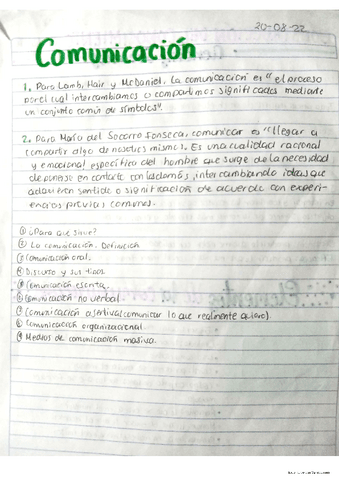 20-08-22
Comunicación
1. Para Lamb, Hair y McDaniel, La comunicación es "el proceso
por el cual intercambiamos o compartimos significados mediante
un conjunto común de símbolos".
2. Para María del Socorro Fonseca, comunicar es "llegar a
compartir algo de nosotros mismo". Es una cualidad racional
y emocional específica del hombre que surge de la necesidad
de ponerse en contacto con los demás, intercambiando ideas que
adquieren sentido o significación de acuerdo con experi-
encias previas comunes.
① ¿Para que sirve?
② La comunicación. Definición
③ Comunicación oral.
④ Discurso y sus tipos
⑤ Comunicación escrita.
⑥ Comunicación no verbal.
⑦ Comunicación asertiva (comunicar lo que realmente quiero).
⑧ Comunicación organizacional.
⑨ Medios de comunicación masiva.